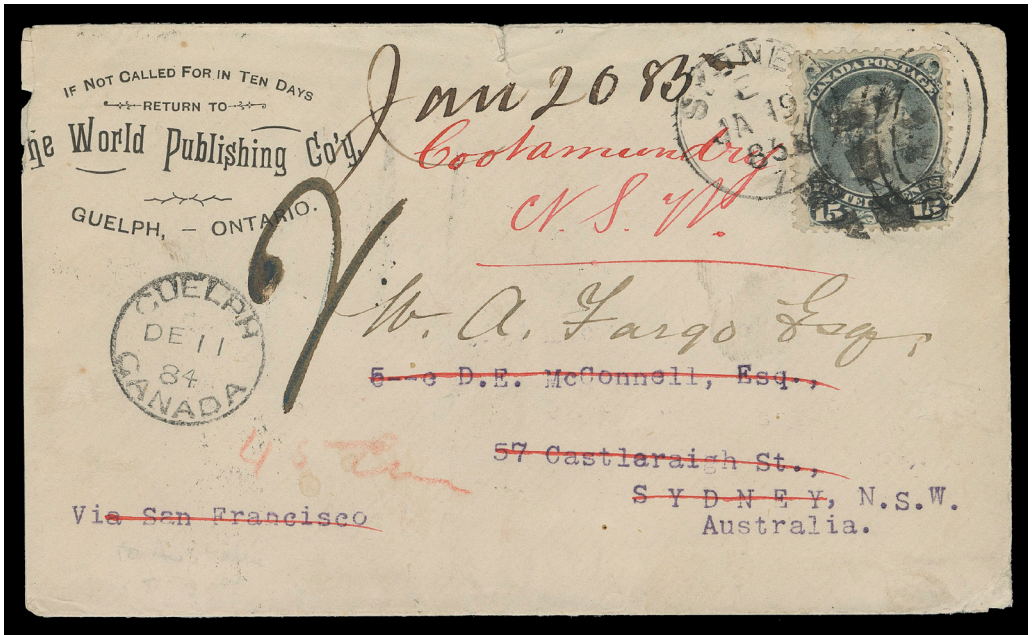 IF NOT CALLED FOR IN TEN DAYS
RETURN TO
The World Publishing Co'y,
GUELPH, — ONTARIO.
Jan 20 85
Cootamundry
N. S. W.
SYDNEY
E
JA 19
85
7
CANADA POSTAGE
15 15
2
W. A. Fargo Esq,
5--c D.E. McConnell, Esq.,
57 Castlaraigh St.,
SYDNEY, N.S.W.
Australia.
Via San Francisco
GUELPH
DE 11
84
CANADA